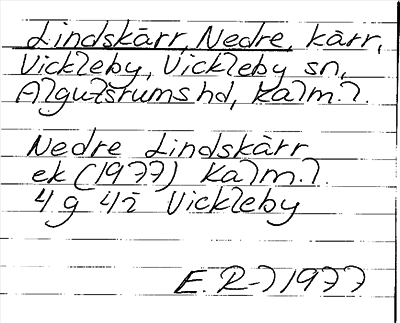 Lindskärr, Nedre, kärr,
Vickleby, Vickleby sn,
Algutsrums hd, Kalm. l.
Nedre Lindskärr
ek (1977) Kalm. l.
4 g 4 i Vickleby
E. R-l 1977